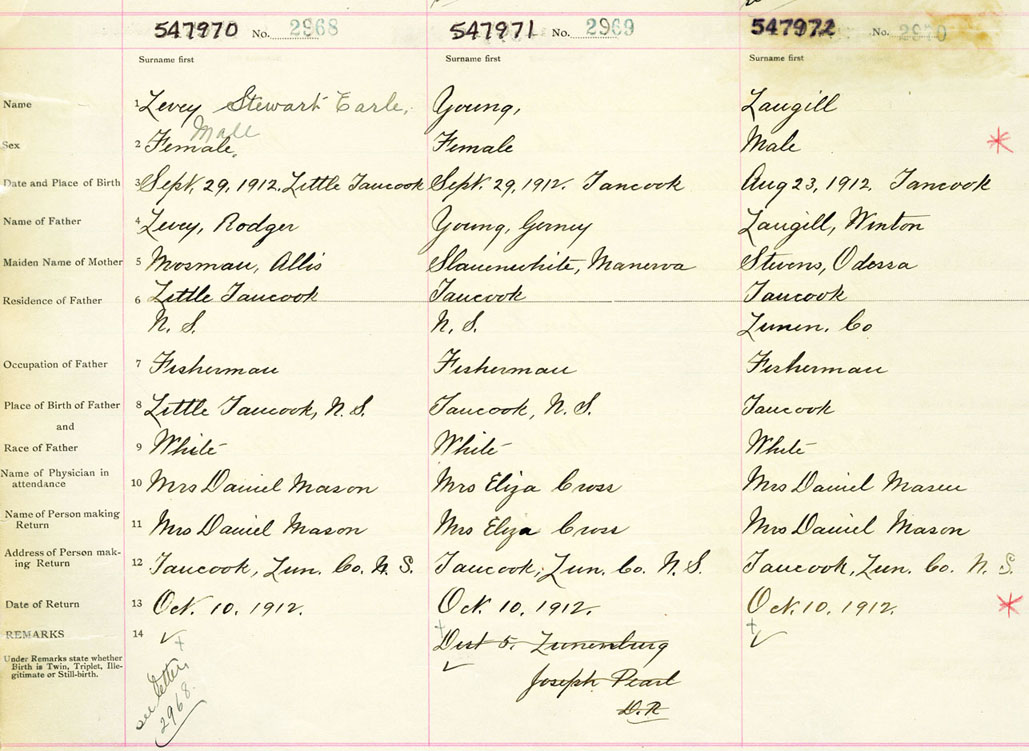 547970 No. 2968 547971 No. 2969 547972 No. 2970
Surname first Surname first Surname first
Name 1 Levey Stewart Earle, Young, Langill
Male
Sex 2 Female, Female Male
Date and Place of Birth 3 Sept. 29, 1912, Little Tancook Sept. 29, 1912. Tancook Aug 23, 1912, Tancook
Name of Father 4 Levey, Rodger Young, Gorney Langill, Winton
Maiden Name of Mother 5 Mosman, Allis Slauenwhite, Manerva Stevens, Odessa
Residence of Father 6 Little Tancook Tancook Tancook
N. S. N. S. Lunen. Co
Occupation of Father 7 Fisherman Fisherman Fisherman
Place of Birth of Father 8 Little Tancook, N. S. Tancook, N. S. Tancook
and
Race of Father 9 White White White
Name of Physician in
attendance 10 Mrs Daniel Mason Mrs Eliza Cross Mrs Daniel Mason
Name of Person making
Return 11 Mrs Daniel Mason Mrs Eliza Cross Mrs Daniel Mason
Address of Person mak-
ing Return 12 Tancook, Lun. Co. N. S. Tancook, Lun. Co. N. S. Tancook, Lun. Co. N. S.
Date of Return 13 Oct. 10, 1912. Oct. 10, 1912. Oct. 10, 1912.
REMARKS 14 Dist 5. Lunenburg
Under Remarks state whether
Birth is Twin, Triplet, Ille-
gitimate or Still-birth.
Joseph Pearl
D. R
see letter
2968.